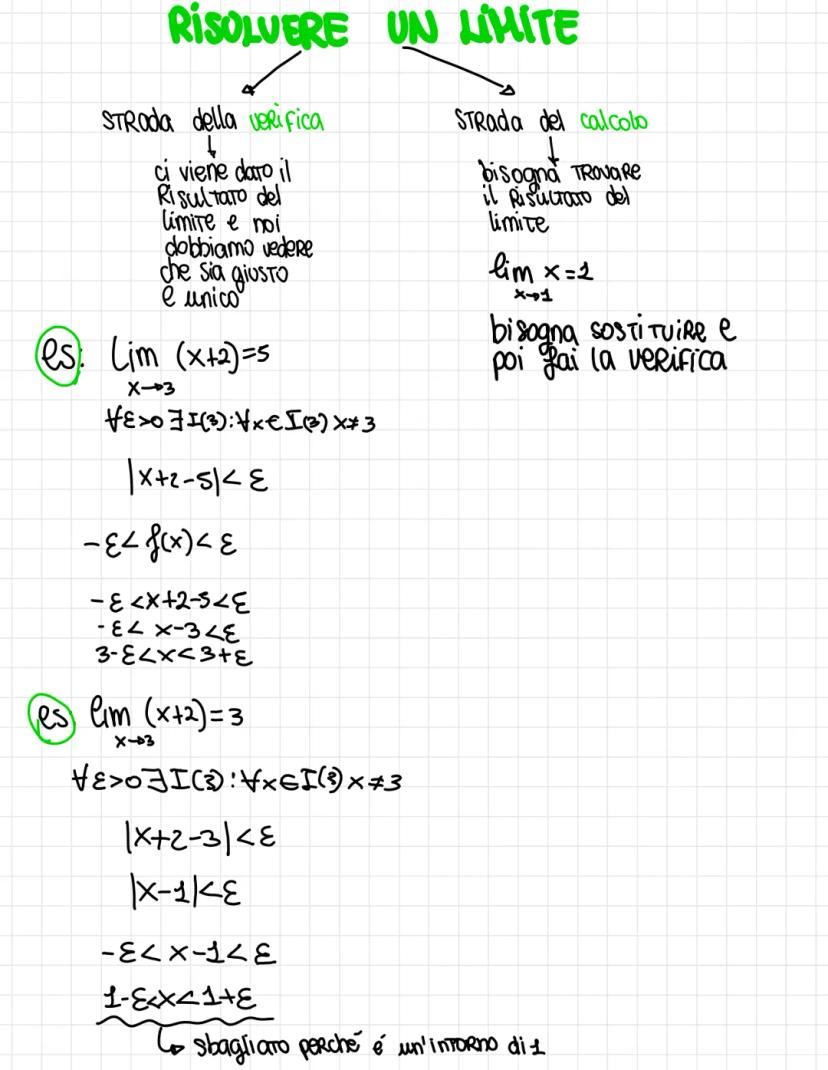 RISOLVERE UN LIMITE
STRADA della verifica
ci viene dato il
RISULTATO del
limite e noi
dobbiamo vedere
che sia giusto
e unico
STRADA del calcolo
bisogna TROVARE
il RISULTATO del
limite
lim x=1
x→1
bisogna sostituire e
poi fai la verifica
es: lim (x+2)=5
x→3
∀ε>0 ∃ I(3):∀x∈I(3) x≠3
|x+2-5|<ε
-ε< f(x)<ε
-ε<x+2-5<ε
-ε< x-3<ε
3-ε<x<3+ε
es lim (x+2)=3
x→3
∀ε>0 ∃ I(3):∀x∈I(3) x≠3
|x+2-3|<ε
|x-1|<ε
-ε< x-1<ε
1-ε<x<1+ε
↳ sbagliato perché é un'intorno di 1